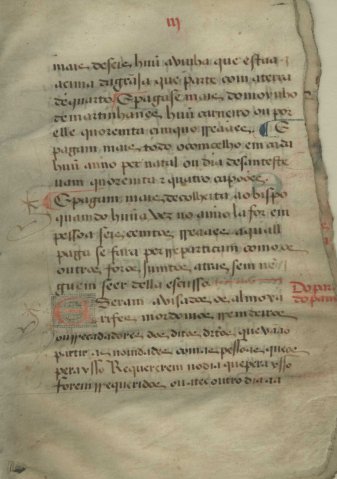 iij
mais de seis. huũ a vinha que estaa
acima da grãia que parte com a terra
de quarto E pagase mais do moynho
de martinhanes. huũ carneiro ou por
elle quorenta e cinquo reaaes. E
pagam mais todo o comcelho em cada
huũ anno per natal ou dia de santeste
uam quorenta e quatro capoões.
E pagam mais de colheita ao bispo
quamdo huũa vez no anno la for em
pessoa seis centos reaaes a quall
paga se fara per repartiçam como os
outros foros juntos atras sem ne
guem seer della escusso.
Seram avisados os almoxa
rifes mordomos rremdeiros
ou rrecadadores dos ditos dirtos que vaão
partir as nouidades com as pessoas que os
pera isso Requererem no dia que pera isso
forem rrequeridos ou atee outro dia aa